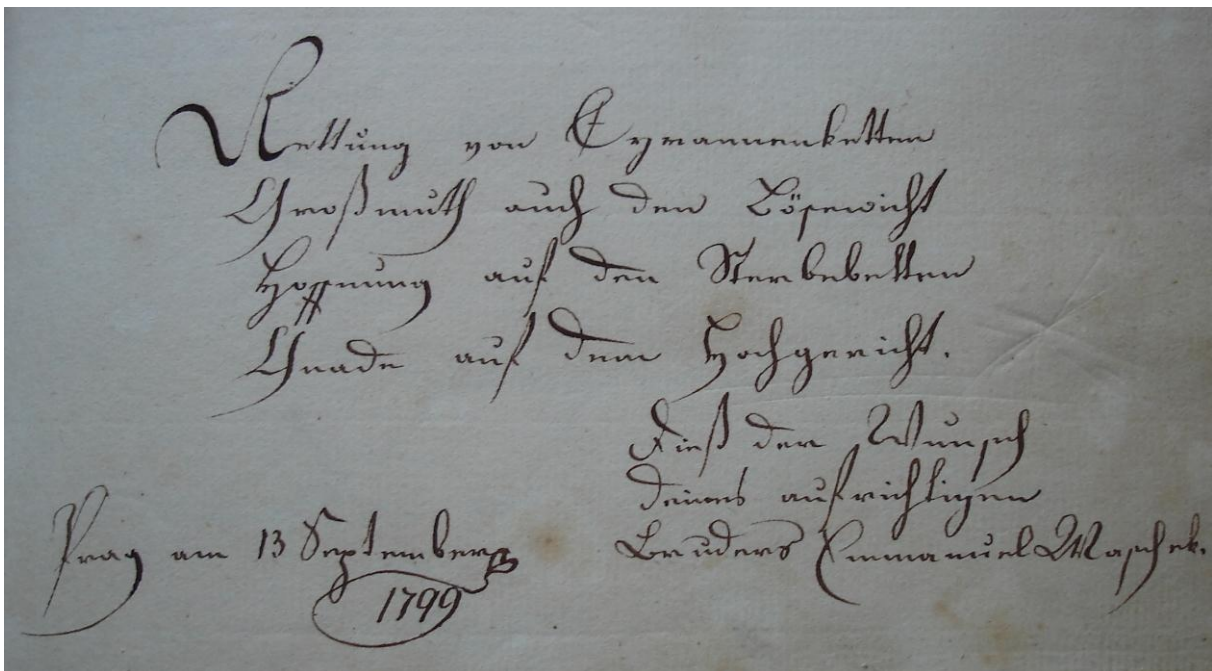 Rettung von Tyrannenketten
Großmuth auch den Bösewicht
Hoffnung auf den Sterbebetten
Gnade auf dem Hochgericht.
Dieß der Wunsch
deines aufrichtigen
Bruders Emmanuel Maschek.
Prag am 13 September
1799